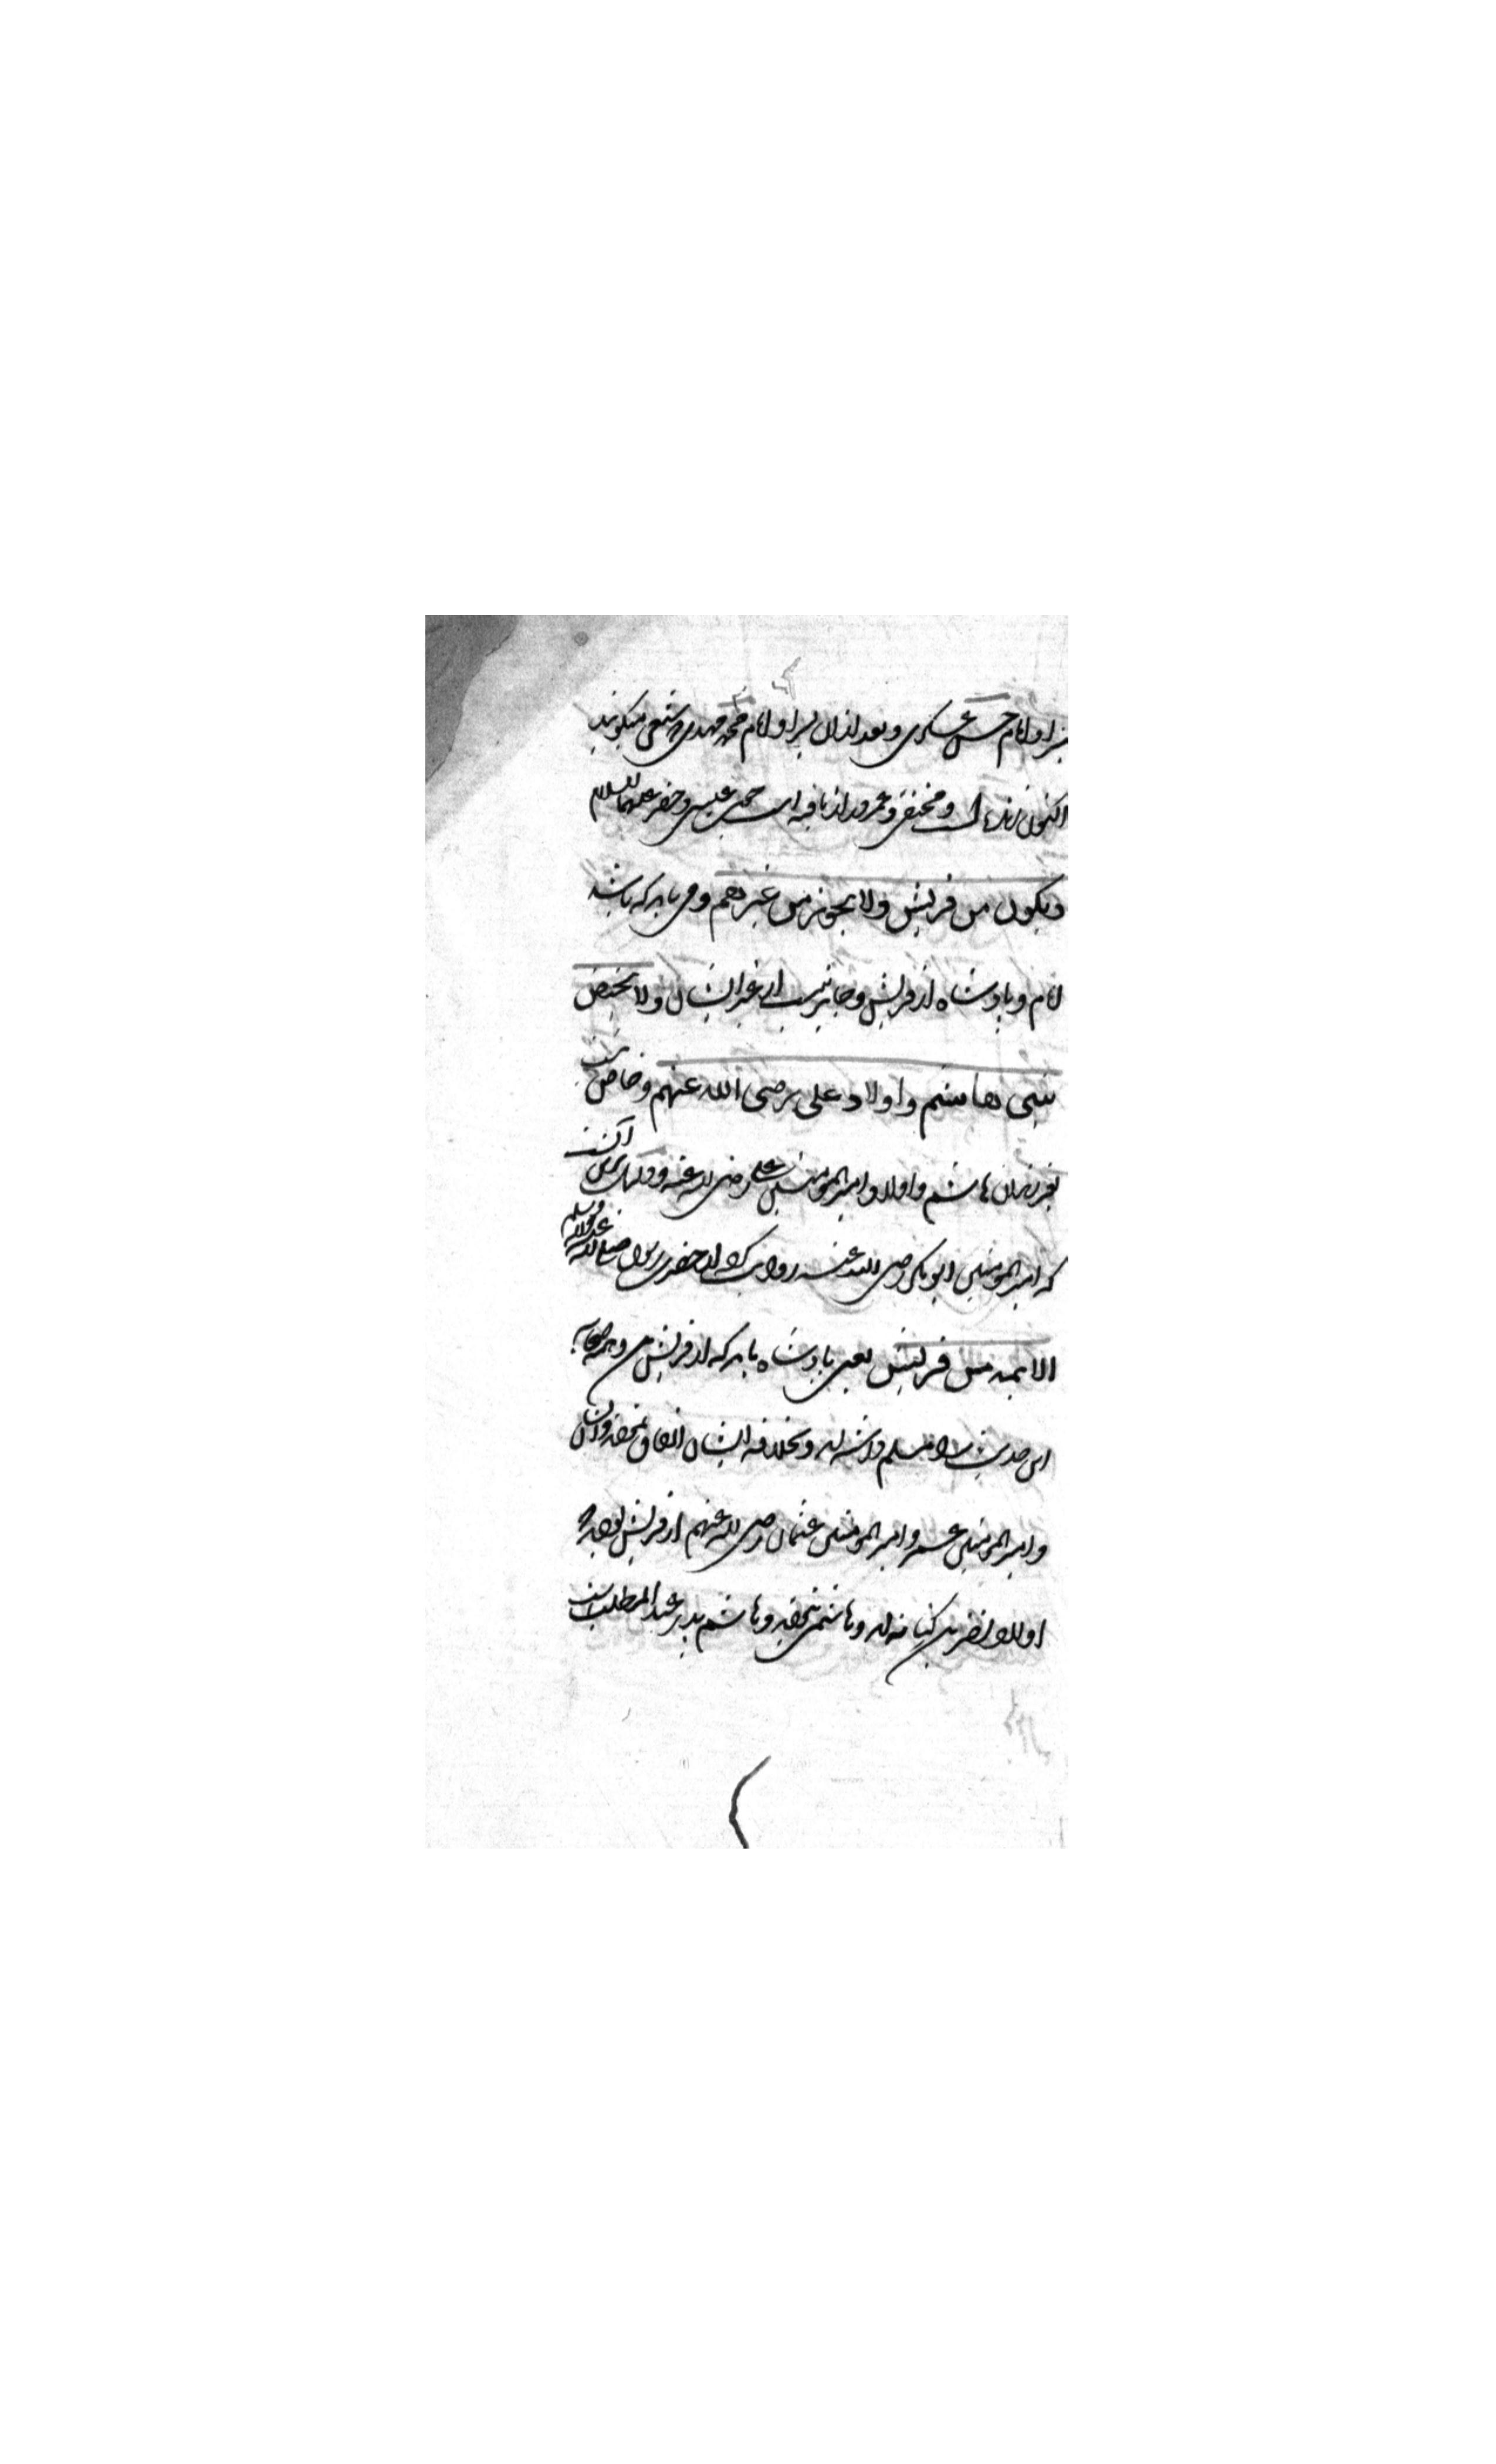 پسر او امام حسن عسکری و بعد ازان پسر او امام محمد مهدی و شیعی میگویند
اکنون زنده است و مختفی و عمر دراز یافته است چون عیسی و خضر علیهما السلام
ویکون من قریش ولا یجوز من غیرهم و می باید که باشد
امام و پادشاه از قریش و جایز نیست از غیر ایشان ولا یختص
ببنی هاشم و اولاد علی رضی الله عنهم و خاص نیست
بفرزندان هاشم و اولاد امیر المومنین علی رضی الله عنه و دلیل برین آنست
که امیر المومنین ابوبکر رضی الله عنه روایت کرد از حضرت رسول صلی الله علیه و آله وسلم
الایمه من قریش یعنی پادشاه باید که از قریش و همه صحابه
این حدیث را مسلم داشته اند و بخلافه ایشان اتفاق نموده و ایشان
و امیر المومنین عمر و امیر المومنین عثمان رضی الله عنهم از قریش بودند
اولاد نضر بن کنانه اند و هاشمی نبودند و هاشم پدر عبد المطلب است